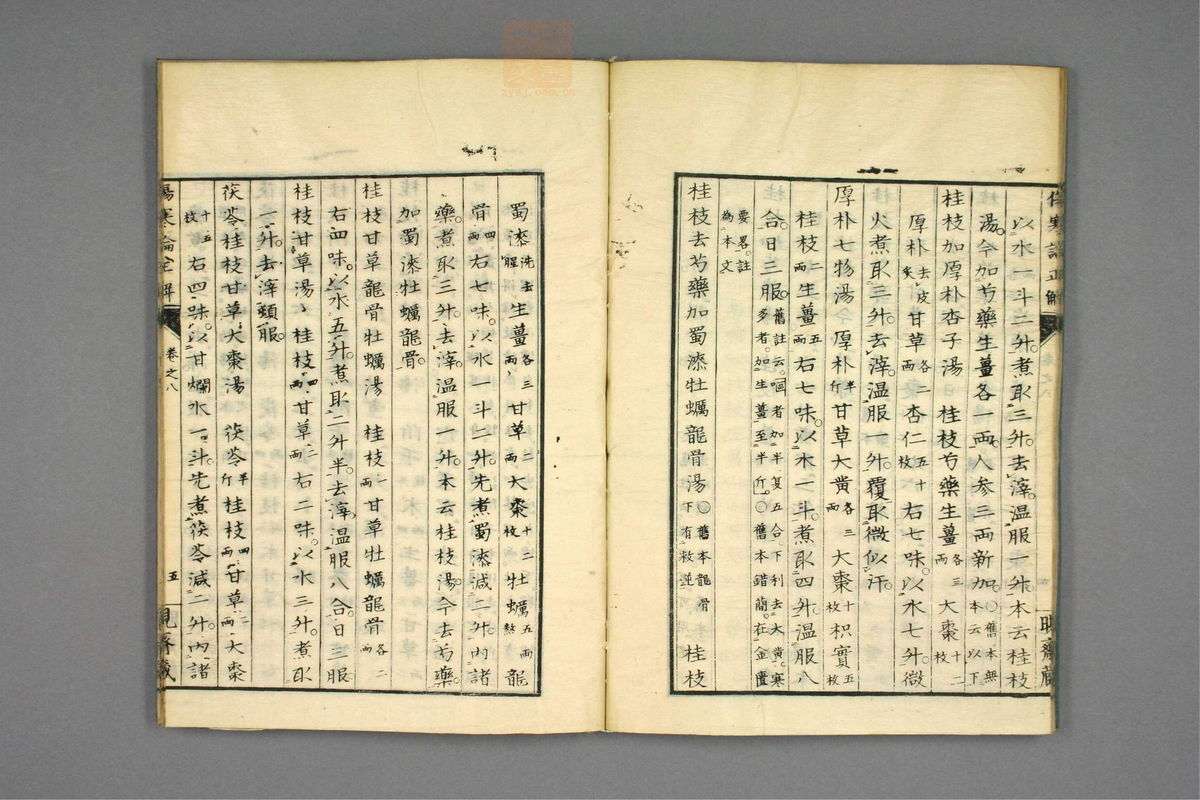 以水一斗二升。煮取三升。去滓。温服一升。本云桂枝
湯。今加芍藥生薑各一兩。人參三兩新加。○舊本無本云以下
桂枝加厚朴杏子湯 桂枝芍藥生薑各三兩大棗十二枚
厚朴去皮炙甘草各二兩杏仁五十枚右七味。以水七升。微
火煮取三升。去滓。温服一升。覆取微似汗。
厚朴七物湯 厚朴半斤甘草大黄各三兩大棗十枚枳實五枚
桂枝二兩生薑五兩右七味。以水一斗。煮取四升。温服八
合。日三服。舊註云。嘔者加半夏五合。下利去大黄。寒多者。加生薑至半斤。○舊本錯簡。在金匱
要畧。註為本文
桂枝去芍藥加蜀漆牡蠣龍骨湯○舊本龍骨下有救逆 桂枝
蜀漆洗去腥生薑各三兩甘草二兩大棗十二枚牡蠣五兩熬龍
骨四兩右七味。以水一斗二升。先煮蜀漆。減二升。内諸
藥。煮取三升。去滓。温服一升。本云桂枝湯。今去芍藥。
加蜀漆牡蠣龍骨。
桂枝甘草龍骨牡蠣湯 桂枝一兩甘草牡蠣龍骨各二兩
右四味。以水五升。煮取二升半。去滓。温服八合。日三服
桂枝甘草湯 桂枝四兩甘草二兩右二味。以水三升。煮取
一升。去滓。頓服。
茯苓桂枝甘草大棗湯 茯苓半斤桂枝四兩甘草二兩大棗
十五枚右四味。以甘爛水一斗。先煮茯苓。減二升。内諸
卷之八
五